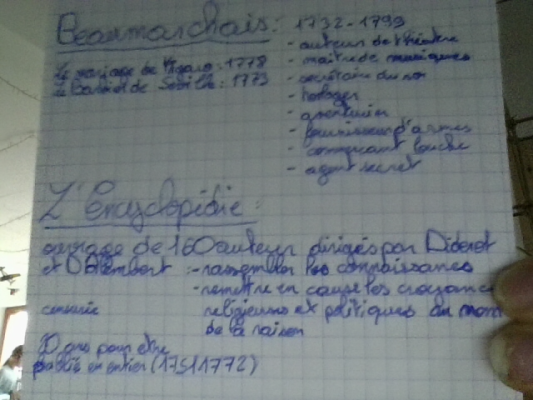 Beaumarchais : 1732-1799
- auteur de théâtre
Le mariage de Figaro : 1778
- maître de musiques
Le Barbier de Séville : 1775
- secrétaire du roi
- horloger
- aventurier
- fournisseur d'armes
- commerçant louche
- agent secret
L'Encyclopédie :
ouvrage de 160 auteurs dirigés par Diderot
et D'Alembert : - rassembler les connaissances
- remettre en cause les croyances
censurée religieuses et politiques au nom
de la raison
ans pour être
publié en entier (1751 1772)